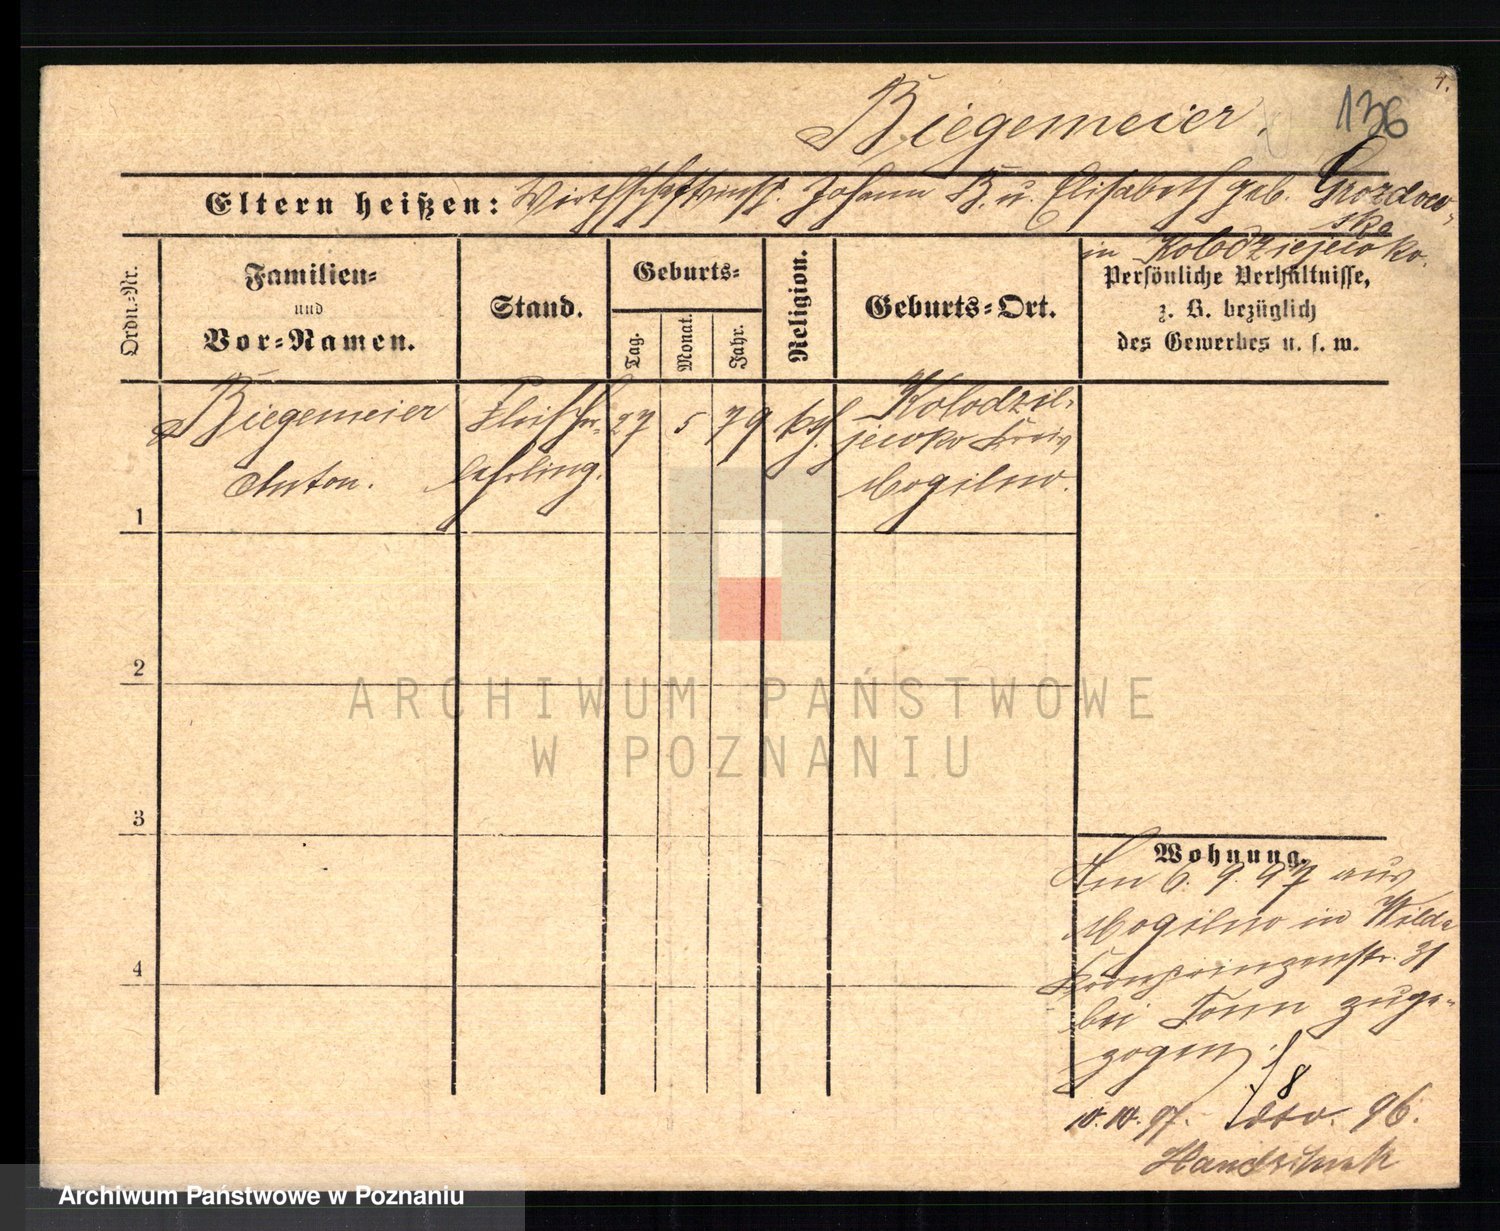 4.
136
Biegemeier.
Eltern heißen: Wirthschaftsinsp. Johann B. u. Elisabeth geb. Grozdow-
ska
in Kolodziejewko.
Ordn.-Nr.
Familien-
und
Vor-Namen.
Stand.
Geburts-
Tag.
Monat.
Jahr.
Religion.
Geburts-Ort.
Persönliche Verhältnisse,
z. B. bezüglich
des Gewerbes u. s. w.
1
Biegemeier
Anton.
Fleischer-
lehrling.
27
5
79
kth.
Kolodzie-
jewko Kreis
Mogilno.
2
ARCHIWUM PAŃSTWOWE
W POZNANIU
3
4
Wohnung.
Am 6. 9. 97 aus
Mogilno in Wilda
Kronprinzenstr. 31
bei Tonn zuge-
zogen.
10. 10. 97. 96.
Archiwum Państwowe w Poznaniu